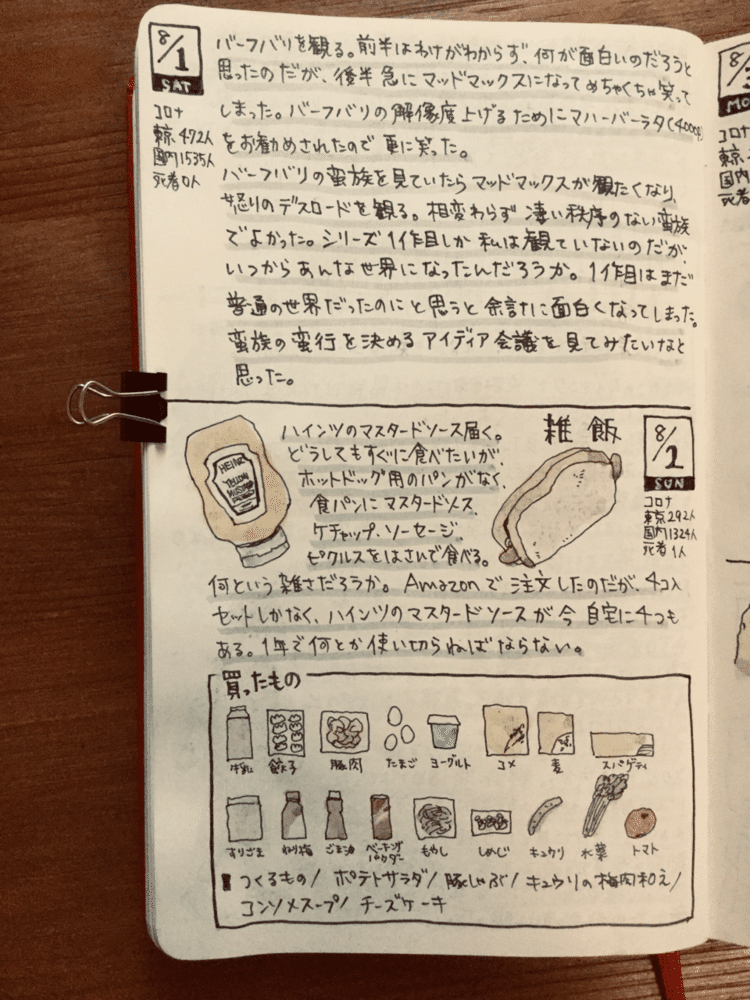 8/1
SAT
コロナ
東京 472人
国内 1535人
死者 0人
バーフバリを観る。前半はわけがわからず、何が面白いのだろうと
思ったのだが、後半急にマッドマックスになってめちゃくちゃ笑って
しまった。バーフバリの解像度上げるためにマハーバーラタ(400P)
をお勧めされたので更に笑った。
バーフバリの蛮族を見ていたらマッドマックスが観たくなり、
怒りのデスロードを観る。相変わらず凄い秩序のない蛮族
でよかった。シリーズ1作目しか私は観ていないのだが、
いつからあんな世界になったんだろうか。1作目はまだ
普通の世界だったのにと思うと余計に面白くなってしまった。
蛮族の蛮行を決めるアイディア会議を見てみたいなと
思った。
8/2
SUN
コロナ
東京 292人
国内 1324人
死者 1人
雑飯
HEINZ
YELLOW
MUSTARD
ハインツのマスタードソース届く。
どうしてもすぐに食べたいが、
ホットドッグ用のパンがなく、
食パンにマスタードソース、
ケチャップ、ソーセージ、
ピクルスをはさんで食べる。
何という雑さだろうか。Amazonで注文したのだが、4コ入
セットしかなく、ハインツのマスタードソースが今自宅に4つも
ある。1年で何とか使い切らねばならない。
買ったもの
牛乳 餃子 豚肉 たまご ヨーグルト コメ 麦 スパゲティ
すりごま ねり梅 ごま油 ベーキングパウダー もやし しめじ キュウリ 水菜 トマト
つくるもの/ ポテトサラダ/ 豚しゃぶ/ キュウリの梅肉和え/
コンソメスープ/ チーズケーキ
8/3
MO
コロナ
東京
国内
死者